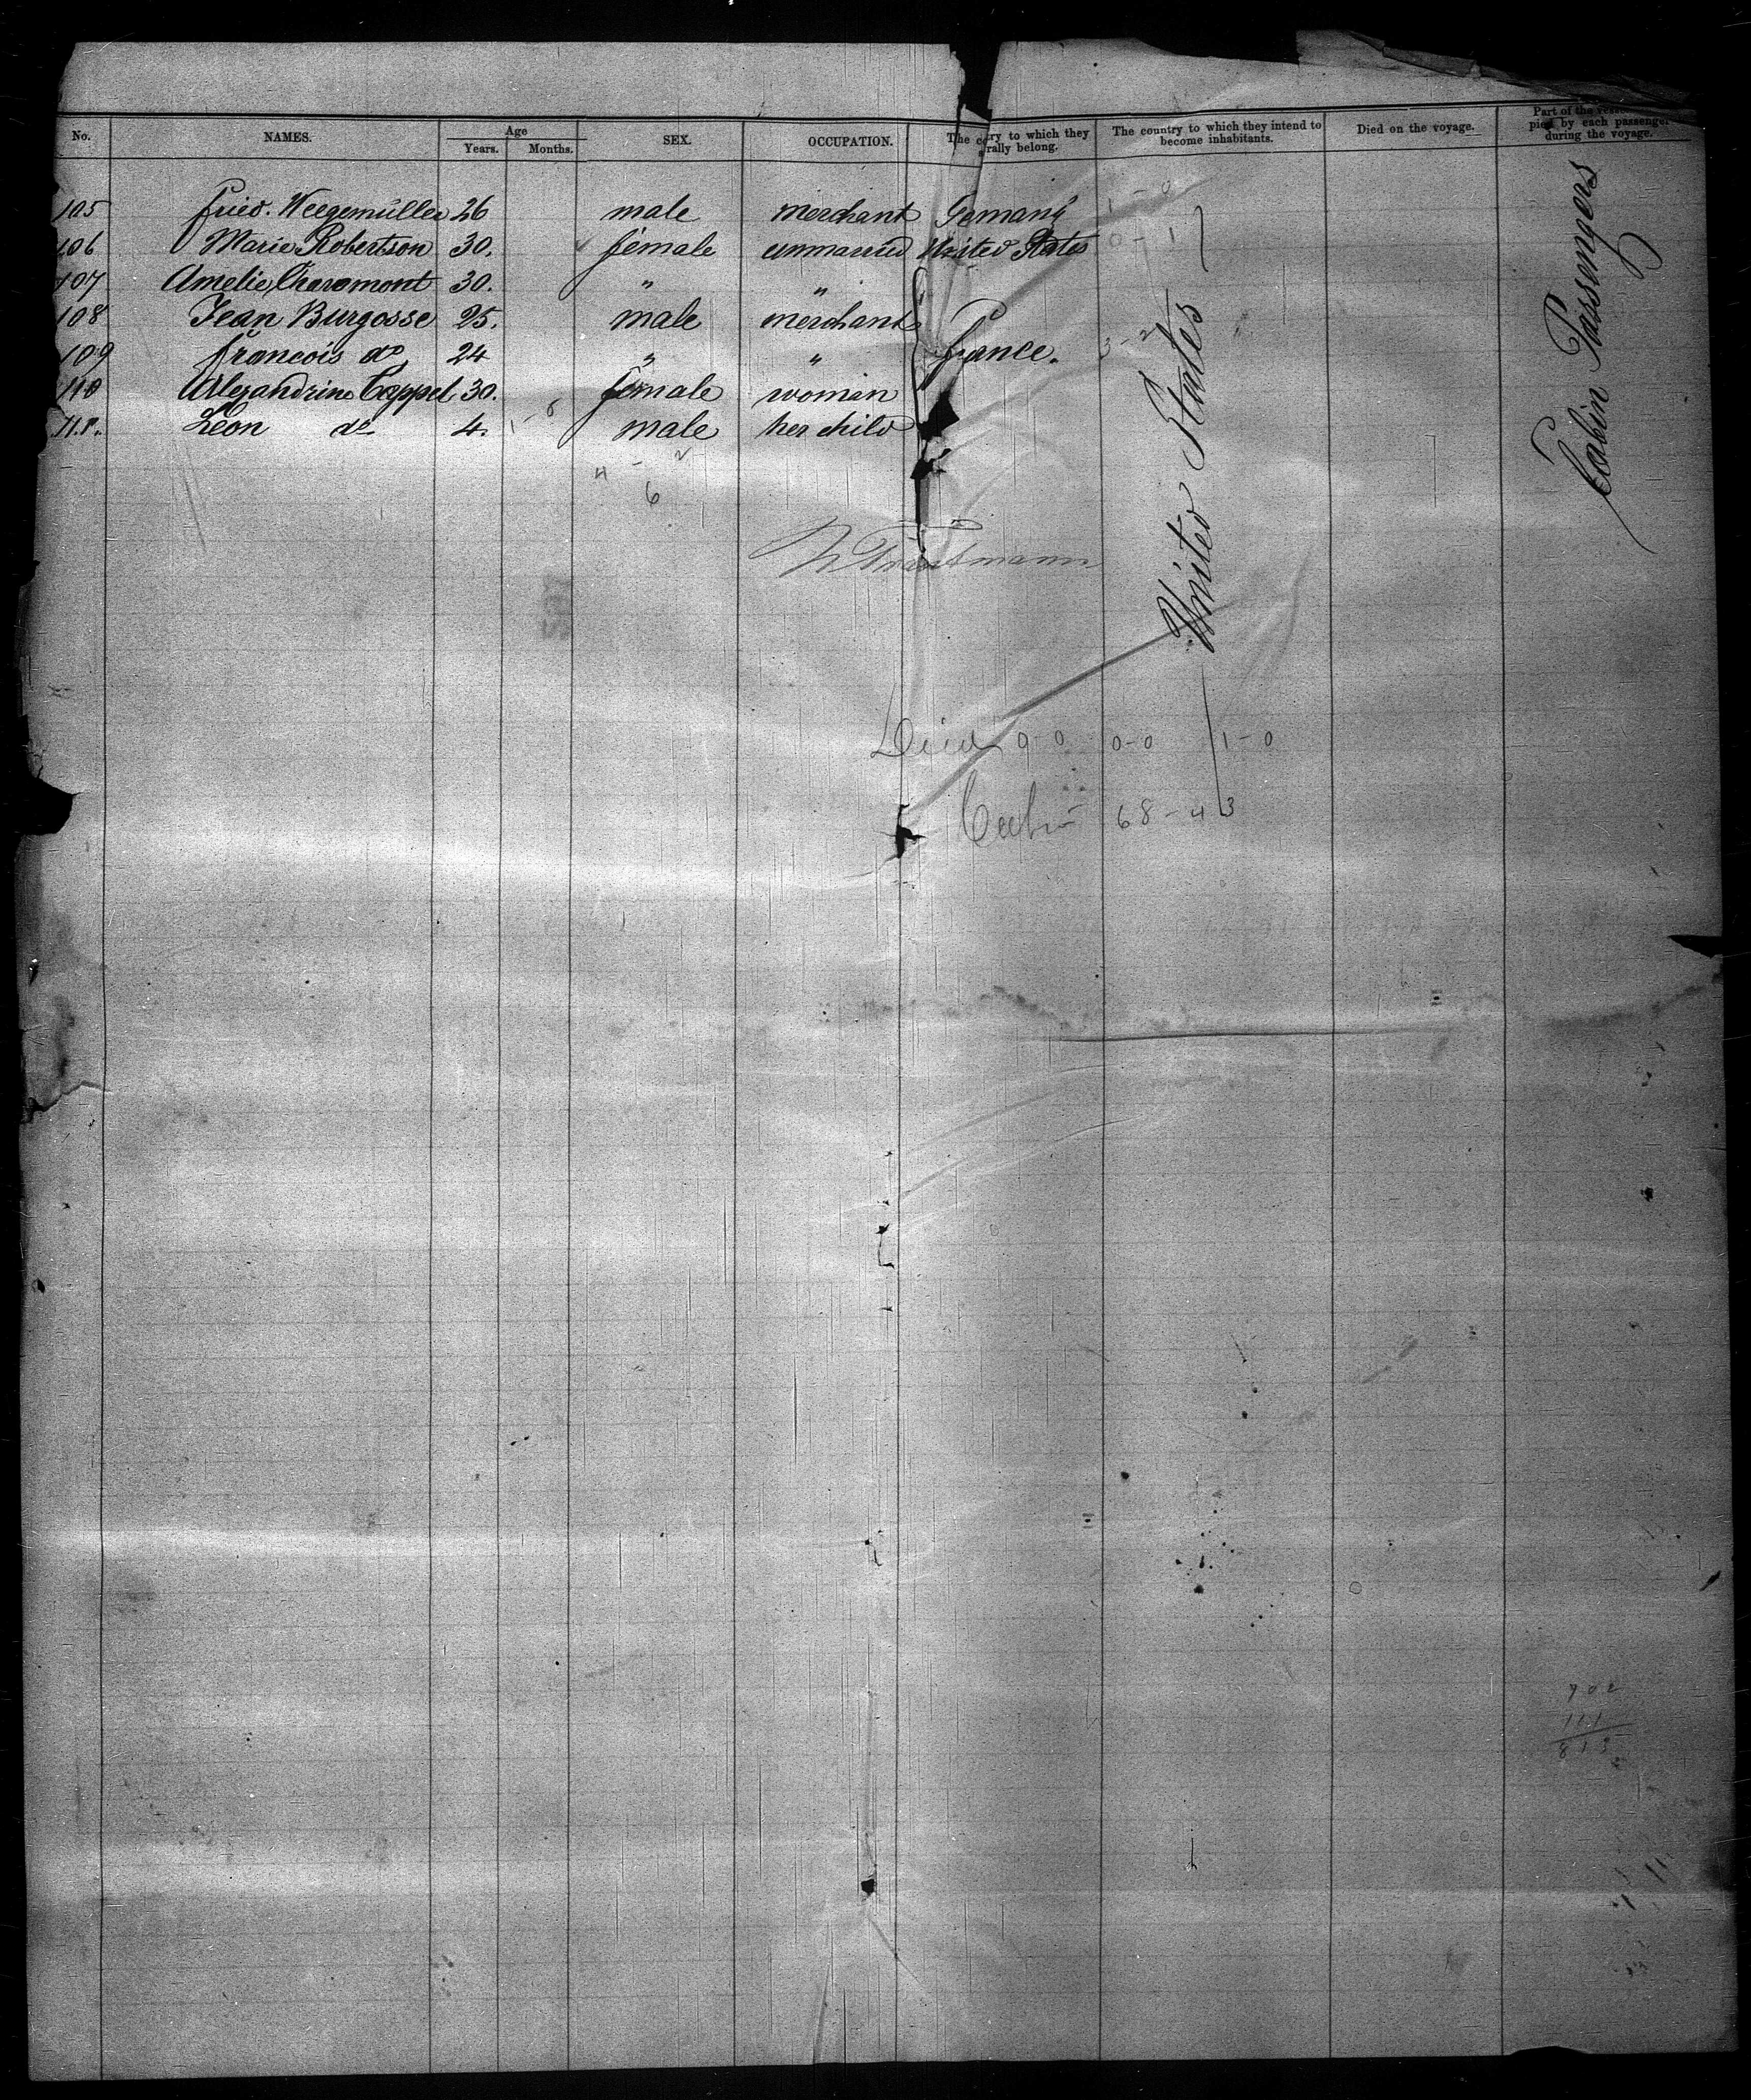 No. NAMES. Age Years. Months. SEX. OCCUPATION. The co ry to which they rally belong. The country to which they intend to become inhabitants. Died on the voyage. Part of the pied by each passenger during the voyage.
105 Fried. Weegemüller 26 male merchant Germany 1 - 0
106 Marie Robertson 30. female unmarried United States 0 - 1
107 Amelie Charamont 30. " "
108 Jean Burgosse 25. male merchant
109 Francois do 24 " " France. 3 - 2
110 Alexandrine Cappel 30. female woman
111. Leon do 4. male her child
4 - 2
6
United States
Cabin Passengers
Died 9-0 0-0 1-0
68 - 43
902
111
813